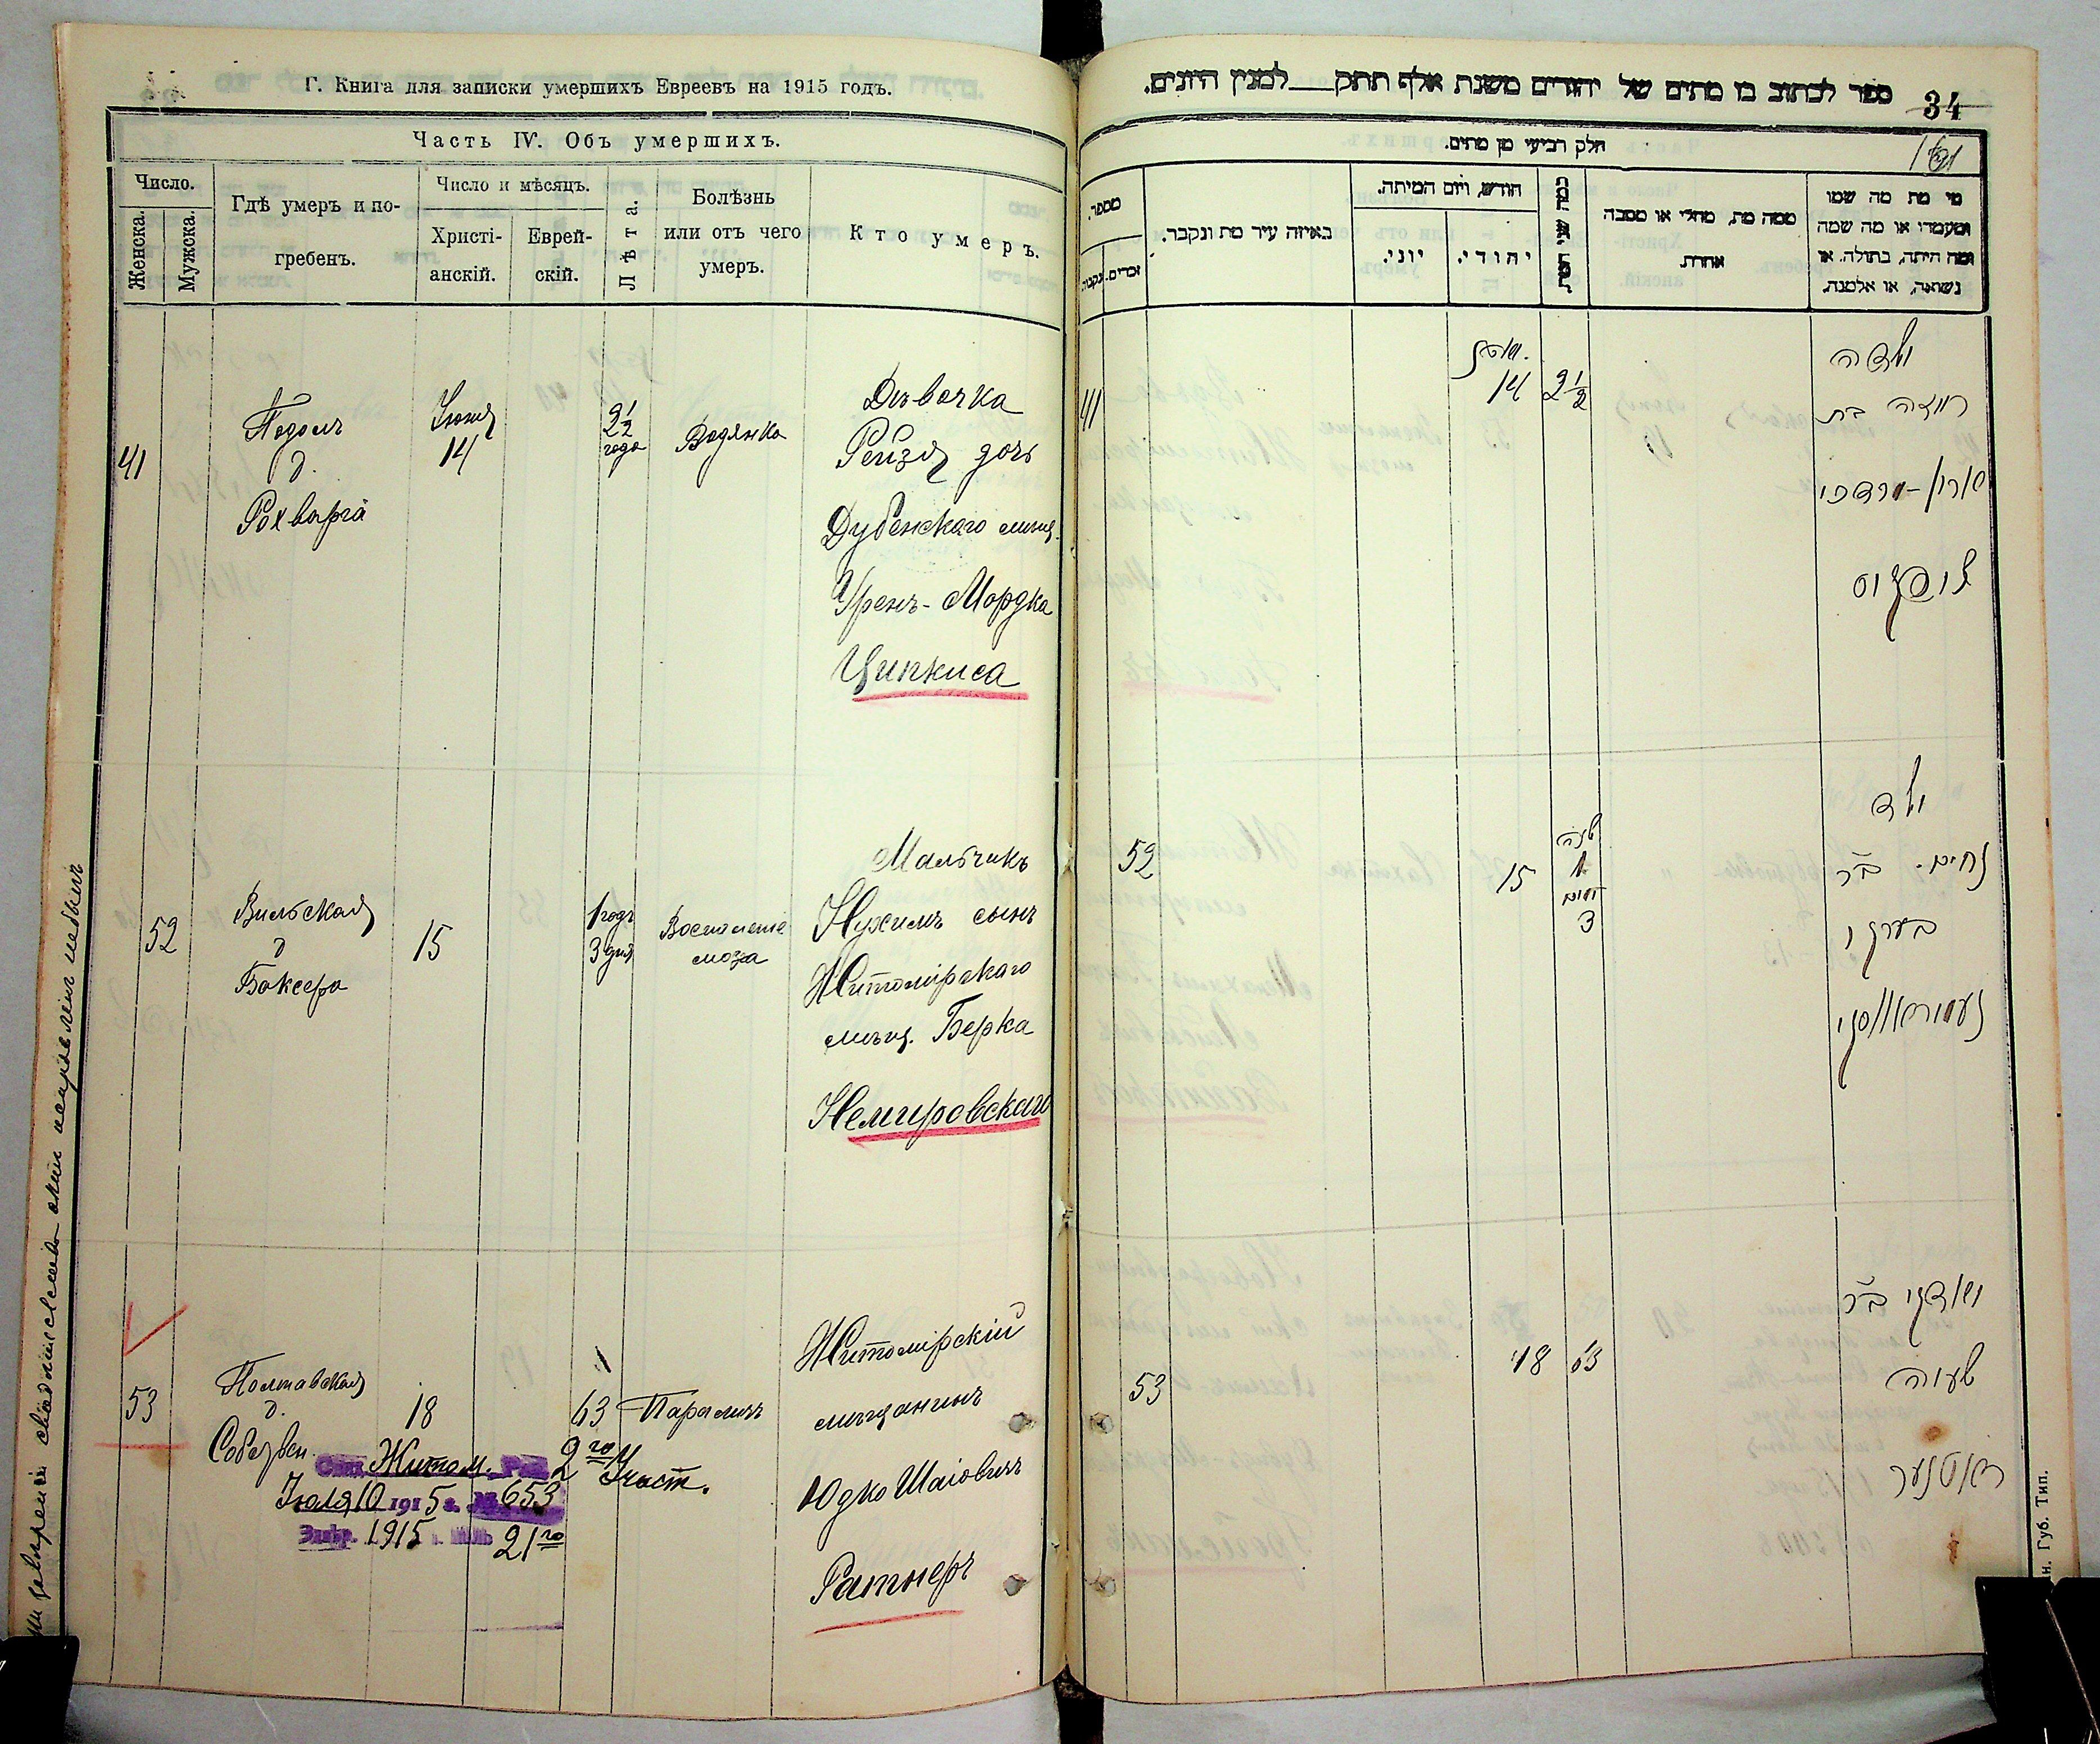 Г. Книга для записки умершихъ Евреевъ на 1915 годъ.
Часть IV. Объ умершихъ.
Число.
Женска.
Мужска.
Гдѣ умеръ и по-
гребенъ.
Число и мѣсяцъ.
Христі-
анскій.
Еврей-
скій.
Лѣта.
Болѣзнь
или отъ чего
умеръ.
Кто умеръ.
41
Подолъ
д.
Рохварга
14
2 1/2
года
Водянка
Дѣвочка
Рейзя дочь
Дубенскаго мѣщ.
Уренъ-Мордка
Ципкиса
52
Вильская
д
Боксера
15
1 годъ
3 дня
Воспаленіе
мозга
Мальчикъ
Нухимъ сынъ
Житомірскаго
мѣщ. Берка
Немировскаго
53
Полтавская
д.
Собствен.
18
63
Параличъ
Житомірскій
мѣщанинъ
Юдко Шаіовичъ
Ратнеръ
Житом. Рав. 2го Участ.
Іюля 10 1915 г. № 653
1915 г. 21го
ספר לכתוב בו מתים של יהודים משנת אלף תתק למנין היונים.
34
חלק רביעי מן מתים.
מספר.
נקבה.
זכרים.
באיזה עיר מת ונקבר.
חודש, ויום המיתה.
יוני.
יהודי.
ממה מת, מחלי או מסבה
אחרת
מי מת מה שמו
ומעמדו או מה שמה
ומה היתה, בתולה. או
נשואה, או אלמנה.
41
14
2 1/2
ילדה
רייזה בת
אורן-מרדכי
ציפקיס
52
15
שנה
1
ימים
3
ילד
נחים ב״ר
בערקא
נעמיראווסקי
53
18
63
יודקי ב״ר
ישעיה
ראטנער
Губ. Тип.